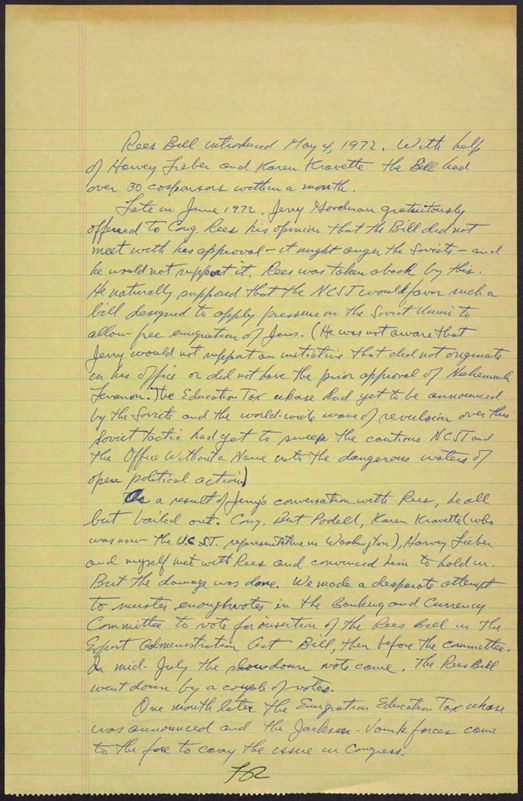 Rees Bill introduced May 4, 1972. With help
of Harvey Lieber and Karen Kravette the Bill had
over 30 cosponsors within a month.
Late in June 1972, Jerry Goodman gratuitously
offered to Cong. Rees his opinion that the Bill did not
meet with his approval - it might anger the Soviets - and
he would not support it. Rees was taken aback by this.
He naturally supposed that the NCSJ would favor such a
bill designed to apply pressure on the Soviet Union to
allow free emigration of Jews. (He was not aware that
Jerry would not support an initiative that did not originate
in his office or did not have the prior approval of Nehemiah
Levanon. The Education Tax ukase had yet to be announced
by the Soviets and the world-wide wave of revulsion over this
Soviet tactic had yet to sweep the cautious NCSJ and
the Office Without a Name into the dangerous waters of
open political action)
As a result of Jerry's conversation with Rees, he all
but bailed out. Cong. Bert Podell, Karen Kravette (who
was now the UCSJ. representative in Washington), Harvey Lieber
and myself met with Rees and convinced him to hold on.
But the damage was done. We made a desparate attempt
to muster enough votes in the Banking and Currency
Committee to vote for insertion of the Rees Bill in the
Export Administration Act Bill, then before the committee.
In mid-July the showdown vote came. The Rees Bill
went down by a couple of votes.
One month later the Emigration Education Tax ukase
was announced and the Jackson-Vanik forces came
to the fore to carry the issue in Congress.